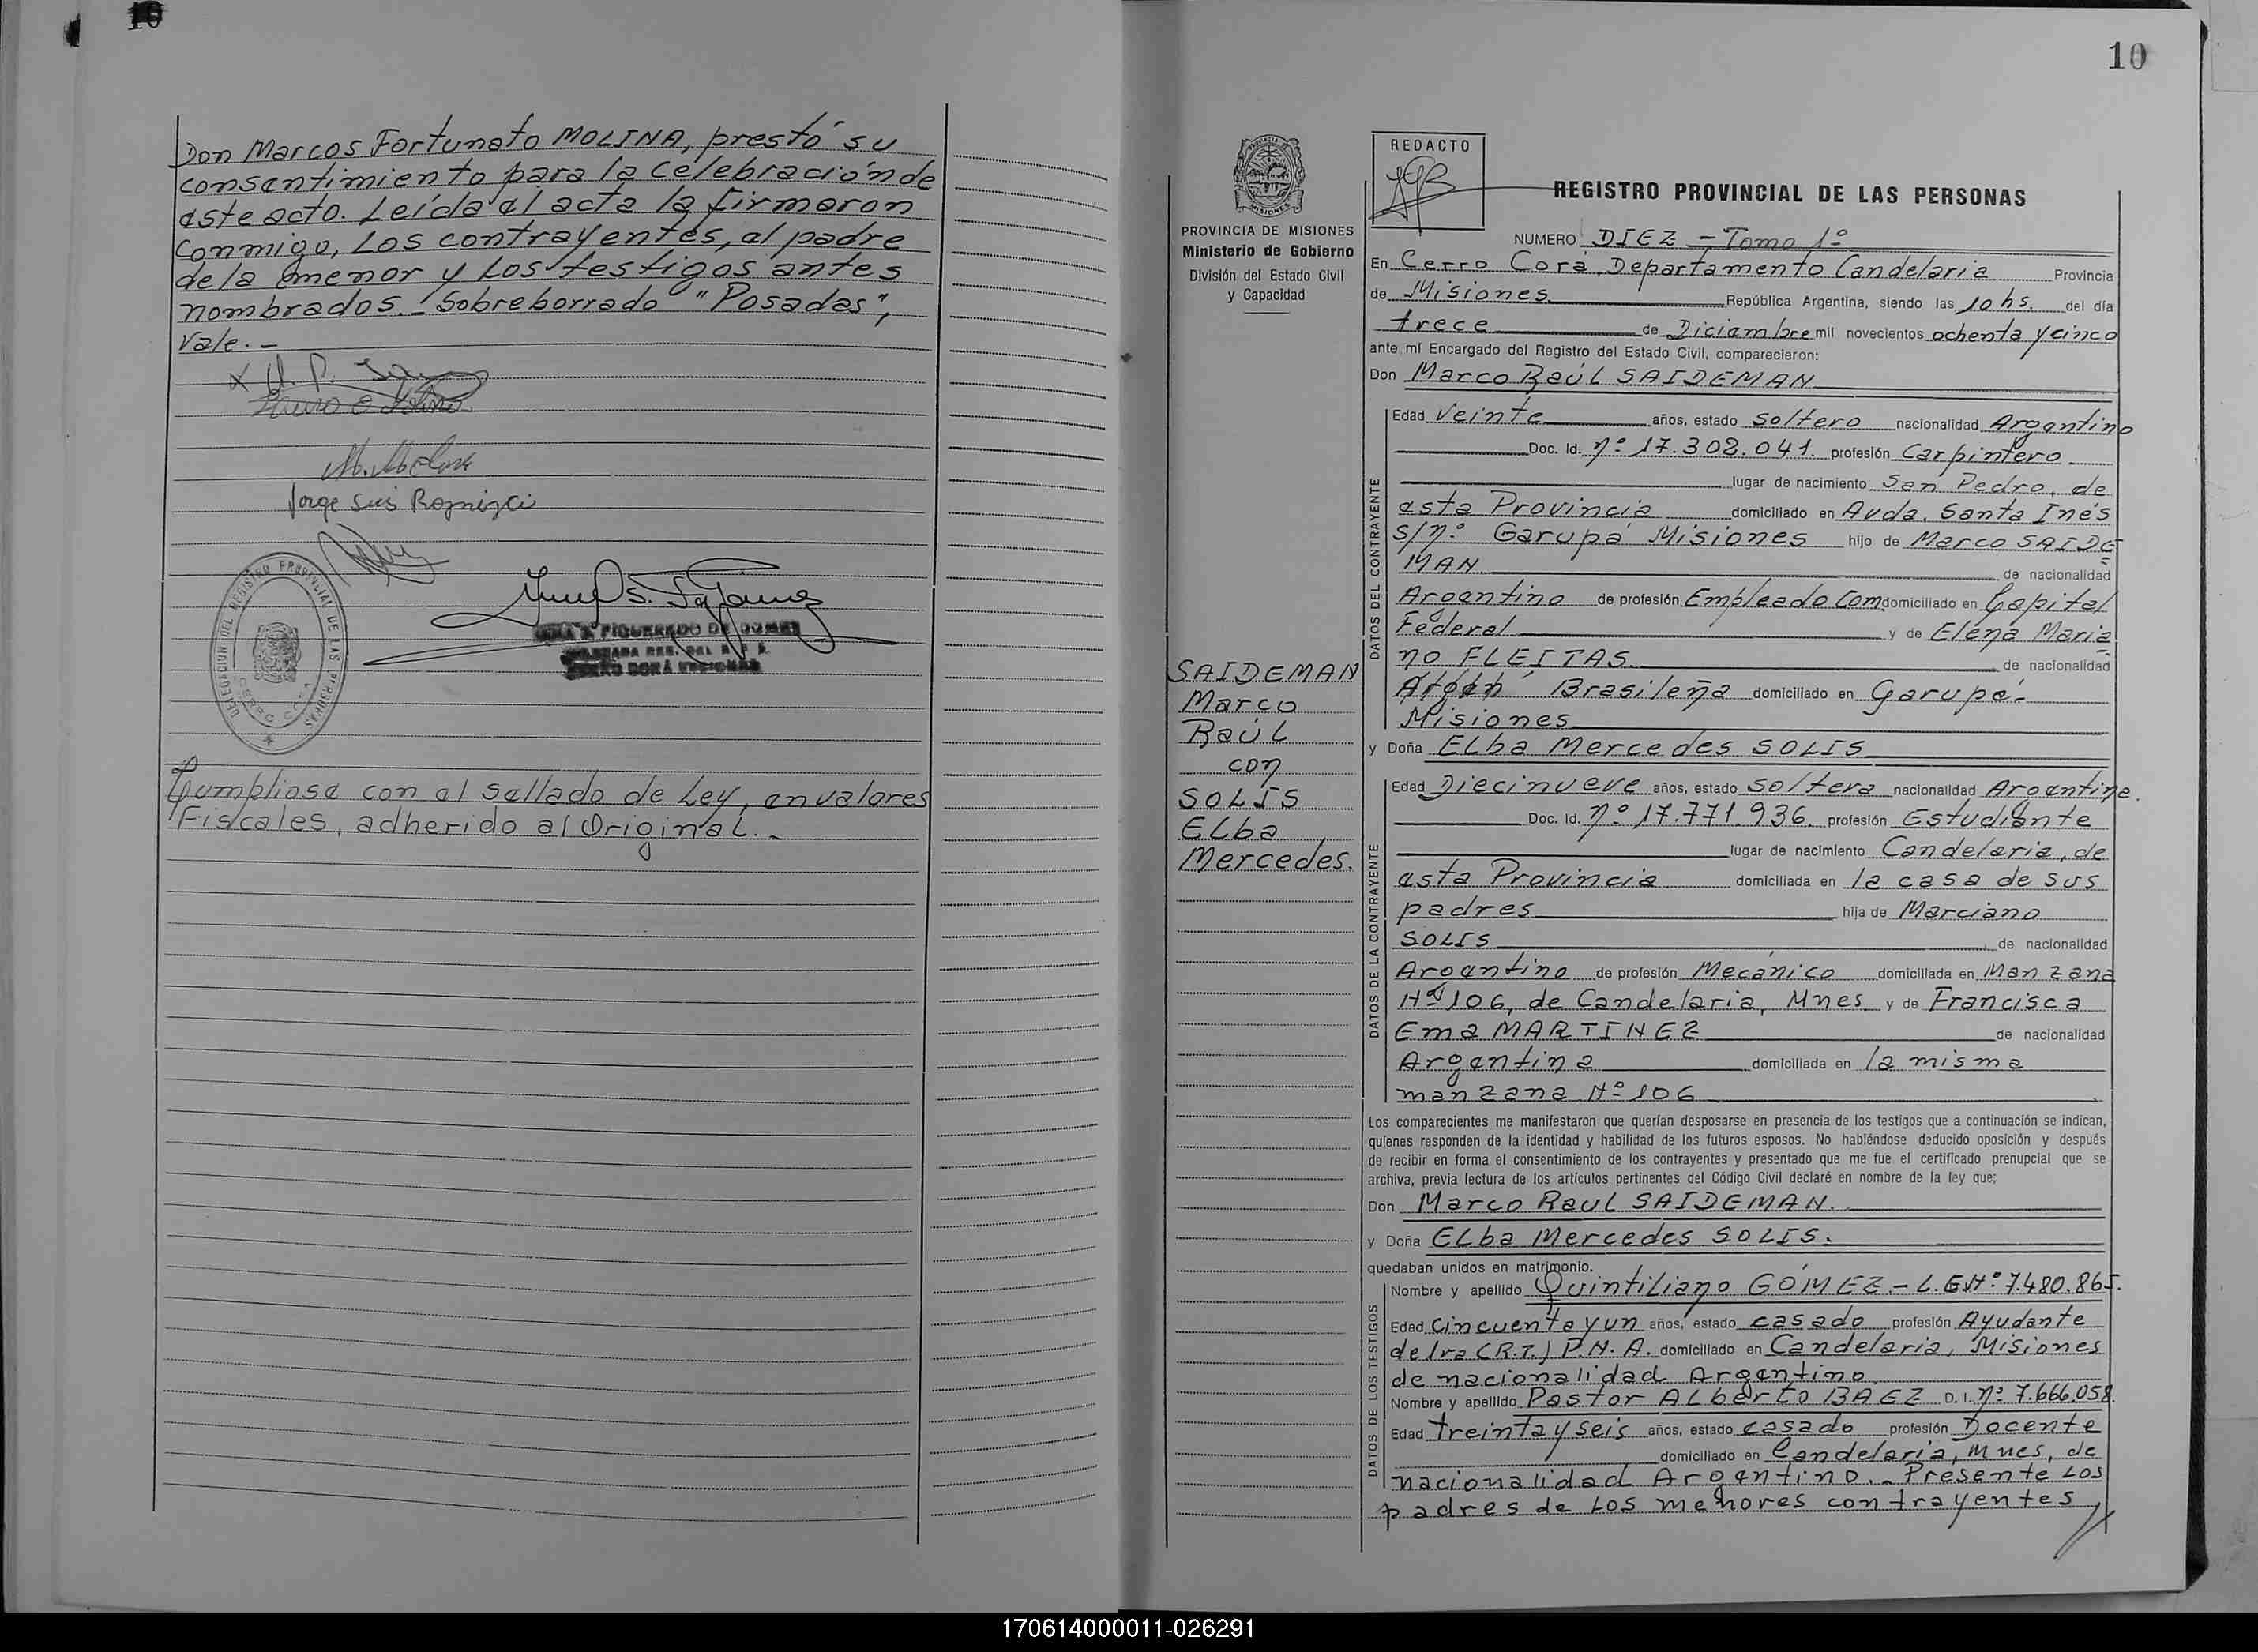 Don Marcos Fortunato MOLINA, prestó su
consentimiento para la celebración de
este acto. Leída el acta la firmaron
conmigo, Los contrayentes, el padre
de la menor y Los testigos antes
nombrados.- Sobreborrado "Posadas",
vale.-
Jorge Luis
DELEGACION DEL REGISTRO PROVINCIAL DE LAS PERSONAS
CERRO CORA
FIGUEREDO DE GOMEZ
CERRO CORÁ MISIONES
Cumpliose con el sellado de Ley, en valores
Fiscales, adherido al Original.-
10
PROVINCIA DE MISIONES
Ministerio de Gobierno
División del Estado Civil
y Capacidad
SAIDEMAN
Marco
Raúl
con
SOLIS
ELba
Mercedes.
REDACTO
REGISTRO PROVINCIAL DE LAS PERSONAS
NUMERO DIEZ - Tomo 1º
En Cerro Corá, Departamento Candelaria Provincia
de Misiones República Argentina, siendo las 10 hs. del día
trece de Diciembre mil novecientos ochenta y cinco
ante mí Encargado del Registro del Estado Civil, comparecieron:
Don Marco Raúl SAIDEMAN
DATOS DEL CONTRAYENTE
Edad Veinte años, estado soltero nacionalidad Argentino
Doc. Id. nº 17.302.041. profesión Carpintero
lugar de nacimiento San Pedro, de
esta Provincia domiciliado en Avda. Santa Inés
s/nº Garupá Misiones hijo de Marco SAIDE
MAN de nacionalidad
Argentino de profesión Empleado Com domiciliado en Capital
Federal y de Elena Maria
no FLEITAS de nacionalidad
Argen Brasileña domiciliado en Garupá-
Misiones
y Doña ELba Mercedes SOLIS
DATOS DE LA CONTRAYENTE
Edad Diecinueve años, estado soltera nacionalidad Argentina.
Doc. Id. nº 17.771.936. profesión Estudiante
lugar de nacimiento Candelaria, de
esta Provincia domiciliada en la casa de sus
padres hija de Marciano
SOLIS de nacionalidad
Argentino de profesión Mecánico domiciliada en Manzana
Nº 106, de Candelaria, Mnes y de Francisca
Ema MARTINEZ de nacionalidad
Argentina domiciliada en la misma
manzana Nº 106
Los comparecientes me manifestaron que querían desposarse en presencia de los testigos que a continuación se indican,
quienes responden de la identidad y habilidad de los futuros esposos. No habiéndose deducido oposición y después
de recibir en forma el consentimiento de los contrayentes y presentado que me fue el certificado prenupcial que se
archiva, previa lectura de los artículos pertinentes del Código Civil declaré en nombre de la ley que;
Don Marco Raul SAIDEMAN.
y Doña ELba Mercedes SOLIS.
quedaban unidos en matrimonio.
DATOS DE LOS TESTIGOS
Nombre y apellido Quintiliano GÓMEZ.- L.E Nº 7.480.865.
Edad Cincuenta y un años, estado casado profesión Ayudante
de 1ra (R.T.) P.N.A. domiciliado en Candelaria, Misiones
de nacionalidad Argentino
Nombre y apellido Pastor ALberto BAEZ D.I. nº 7.666.058.
Edad treinta y seis años, estado casado profesión Docente
domiciliado en Candelaria, Mnes, de
nacionalidad Argentino.- Presente Los
padres de Los menores contrayentes
170614000011-026291